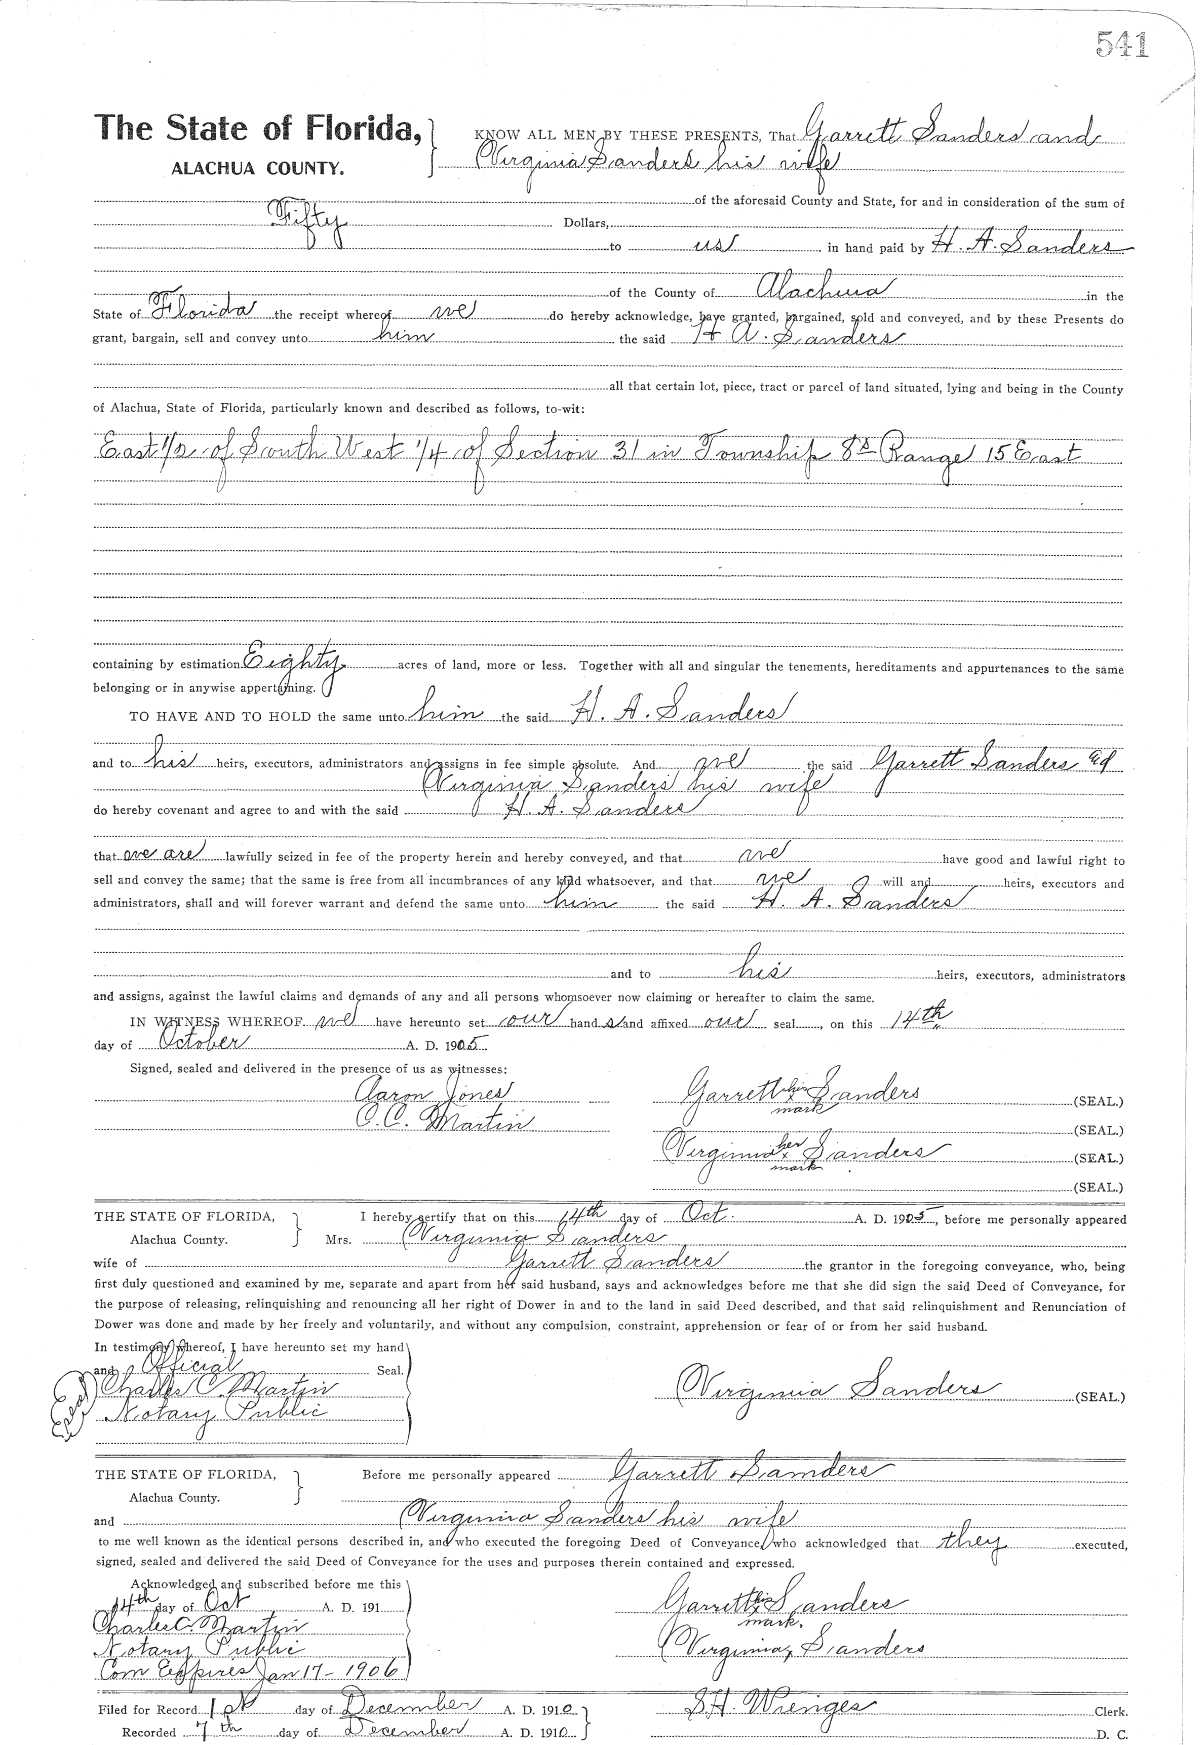 541
The State of Florida,
ALACHUA COUNTY.
KNOW ALL MEN BY THESE PRESENTS, That Garrett Sanders and
Virginia Sanders his wife
of the aforesaid County and State, for and in consideration of the sum of
Fifty Dollars,
to us in hand paid by H. A. Sanders
of the County of Alachua in the
State of Florida the receipt whereof we do hereby acknowledge, have granted, bargained, sold and conveyed, and by these Presents do
grant, bargain, sell and convey unto him the said H A. Sanders
all that certain lot, piece, tract or parcel of land situated, lying and being in the County
of Alachua, State of Florida, particularly known and described as follows, to-wit:
East 1/2 of South West 1/4 of Section 31 in Township 8 s Range 15 East
containing by estimation Eighty acres of land, more or less. Together with all and singular the tenements, hereditaments and appurtenances to the same
belonging or in anywise appertaining.
TO HAVE AND TO HOLD the same unto him the said H. A. Sanders
and to his heirs, executors, administrators and assigns in fee simple absolute. And we the said Garrett Sanders ad
Virginia Sanders his wife
do hereby covenant and agree to and with the said H. A. Sanders
that we are lawfully seized in fee of the property herein and hereby conveyed, and that we have good and lawful right to
sell and convey the same; that the same is free from all incumbrances of any kind whatsoever, and that we will and heirs, executors and
administrators, shall and will forever warrant and defend the same unto him the said H. A. Sanders
and to his heirs, executors, administrators
and assigns, against the lawful claims and demands of any and all persons whomsoever now claiming or hereafter to claim the same.
IN WITNESS WHEREOF we have hereunto set our hand s and affixed our seal , on this 14th
day of October A. D. 1905
Signed, sealed and delivered in the presence of us as witnesses:
Aaron Jones
C. C. Martin
Garrett his x mark Sanders (SEAL.)
(SEAL.)
Virginia her x mark Sanders (SEAL.)
(SEAL.)
THE STATE OF FLORIDA,
Alachua County.
I hereby certify that on this 14th day of Oct. A. D. 1905, before me personally appeared
Mrs. Virginia Sanders
wife of Garrett Sanders the grantor in the foregoing conveyance, who, being
first duly questioned and examined by me, separate and apart from her said husband, says and acknowledges before me that she did sign the said Deed of Conveyance, for
the purpose of releasing, relinquishing and renouncing all her right of Dower in and to the land in said Deed described, and that said relinquishment and Renunciation of
Dower was done and made by her freely and voluntarily, and without any compulsion, constraint, apprehension or fear of or from her said husband.
In testimony whereof, I have hereunto set my hand
and Official Seal.
Seal
Charles C. Martin
Notary Public
Virginia Sanders (SEAL.)
THE STATE OF FLORIDA,
Alachua County.
Before me personally appeared Garrett Sanders
and Virginia Sanders his wife
to me well known as the identical persons described in, and who executed the foregoing Deed of Conveyance, who acknowledged that they executed,
signed, sealed and delivered the said Deed of Conveyance for the uses and purposes therein contained and expressed.
Acknowledged and subscribed before me this
14th day of Oct A. D. 191
Charles C. Martin
Notary Public
Com Expires Jan 17 - 1906
Garrett his x mark. Sanders
Virginia x Sanders
Filed for Record 1st day of December A. D. 1910
S.H. Wienges Clerk.
Recorded 7th day of December A. D. 1910
D. C.